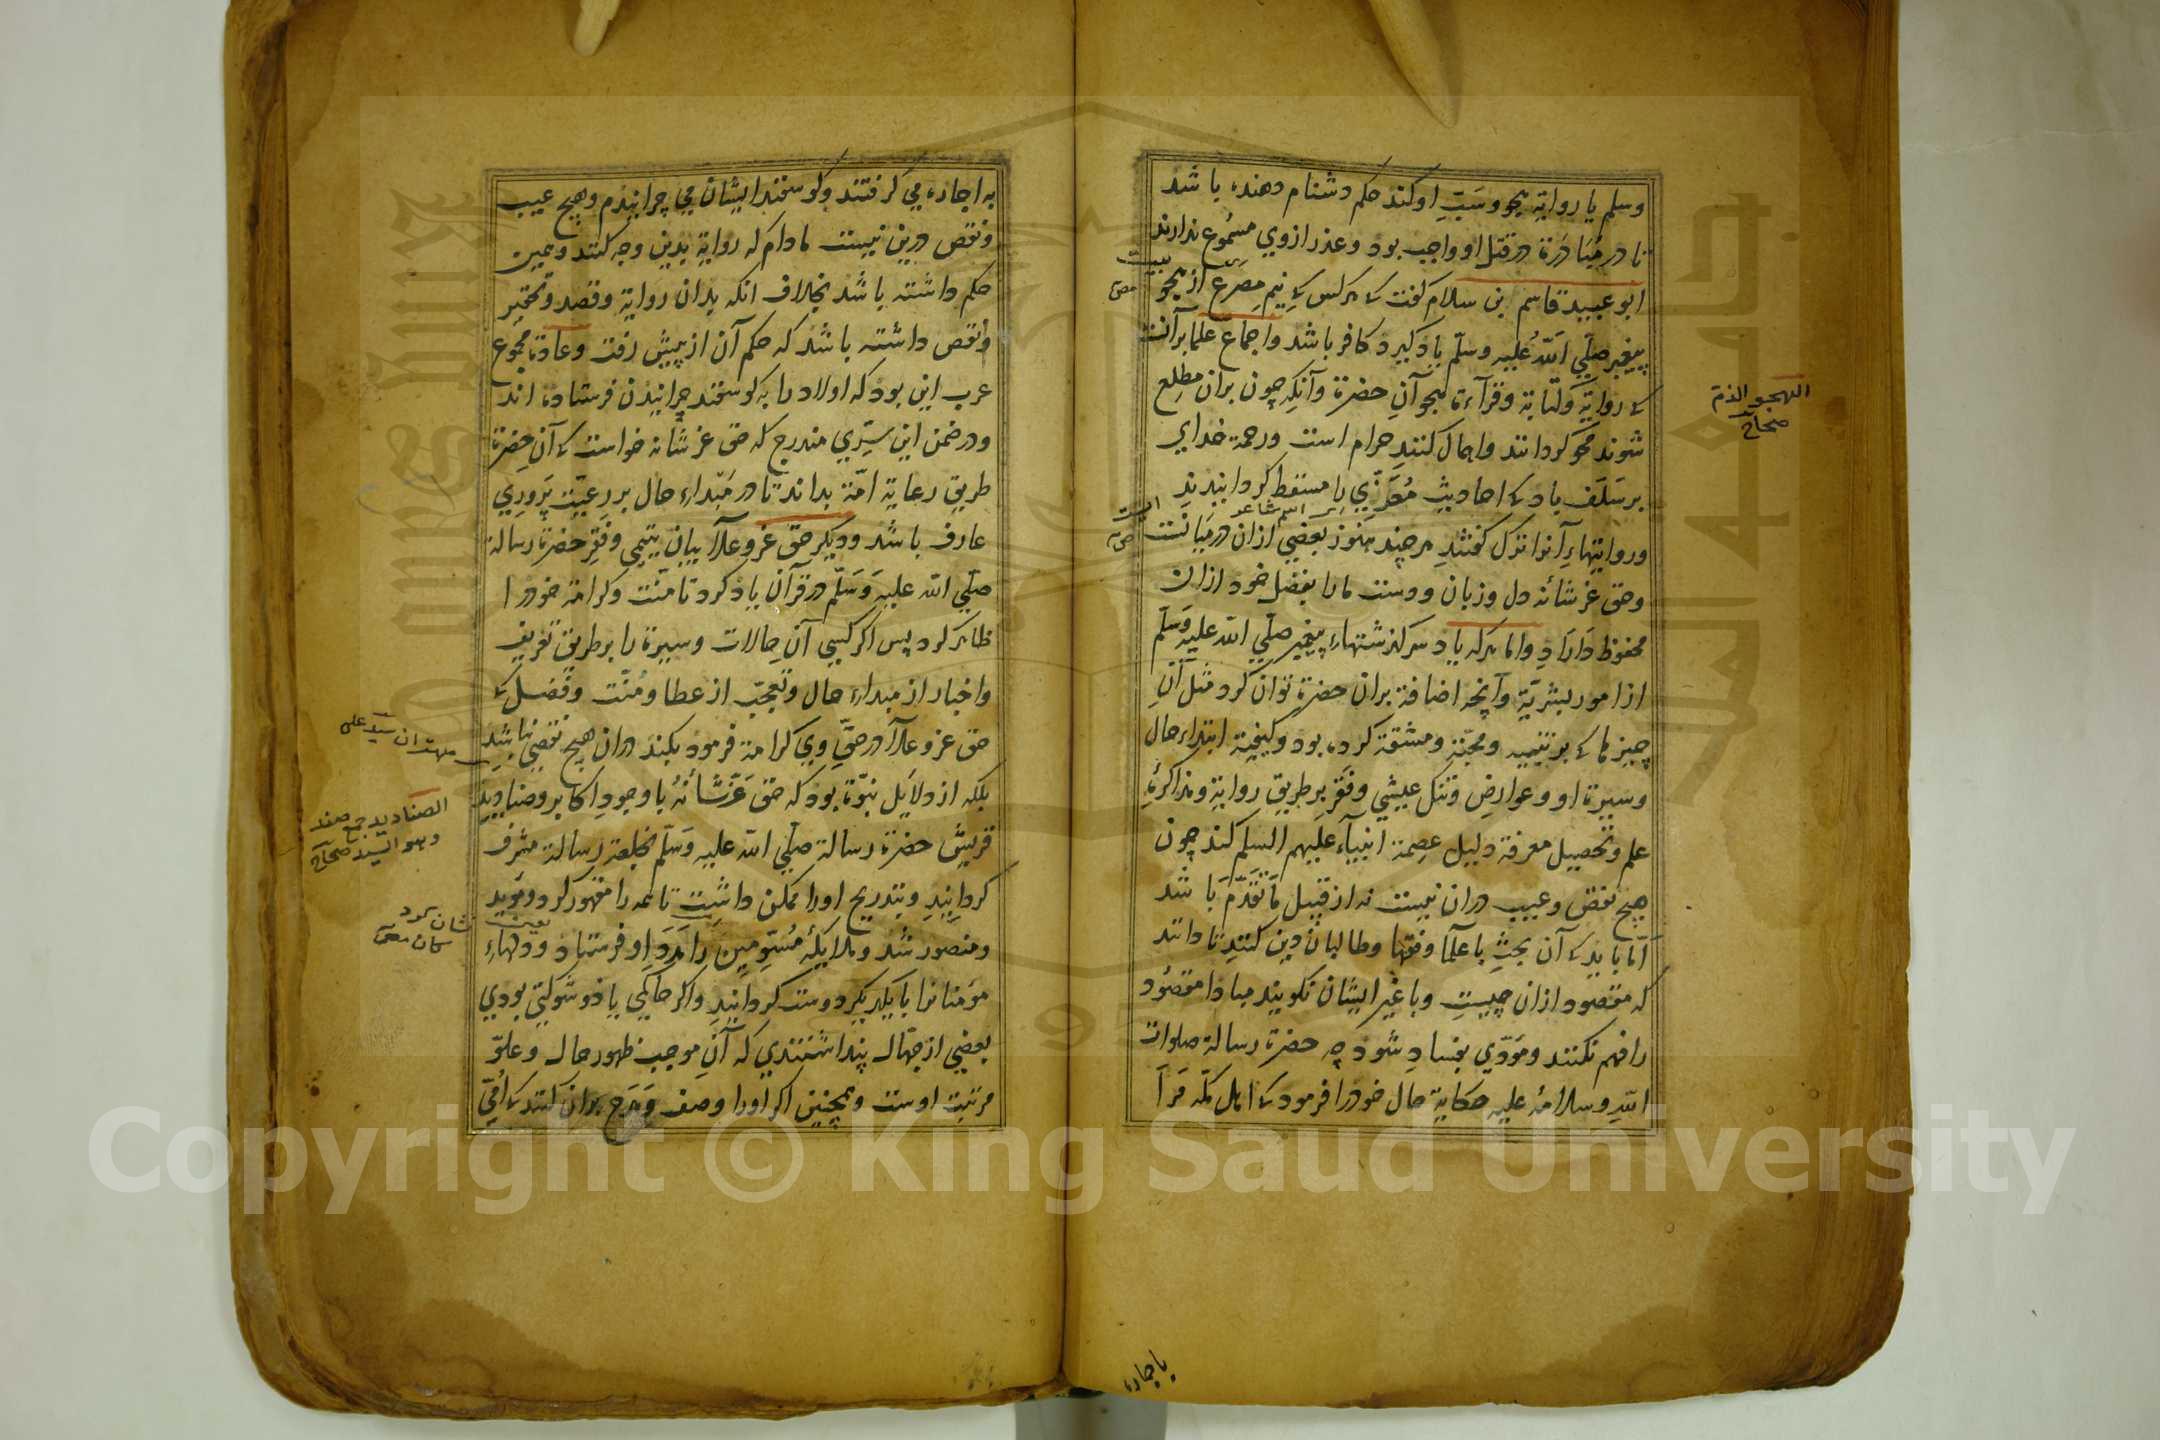 وسلم یا روایة هجو و سَبّ او کند حکم دشنام دهنده باشد
تا در مُبادَرَة در قتل او واجب بود و عذر از وی مسموع ندارند
ابو عبید قاسم بن سلام گفت که هر کس که نیم مصرع از هجو
پیغمبر صلّی اللّه علیه وسلّم یاد گیرد کافر باشد و اجماع علما بر آنست
که روایة و کتابة و قرآءة هجو آن حضرة و آنکه چون بران مطلع
شوند محو گردانند و اهمال کنند حرام است و رحمة خدای
بر سَلَف باد که احادیث مُحَرّزی را مسقط گردانیدند
و روایتهاء آنرا ترک گفتند هر چند هنوز بعضی ازان در میانست
و حق عز شانه دل و زبان و دست ما را بفضل خود ازان
محفوظ داراد و اما هر که یاد سرگذشتهاء پیغمبر صلّی اللّه علیه وسلّم
از امور بشریّة و آنچه اضافة بران حضرة توان کرد مثل آن
چیزها که بر یتیمیه و محبّة و مشقة کرده بود و کیفیة ابتداء حال
و سیرة او و عوارض و تنگ عیشی و فقر بر طریق روایة و مذاکرة
علم و تحصیل معرفة دلیل عصمة انبیآء علیهم السلم کند چون
هیچ نقض و عیب دران نیست نه از قبیل مَا تَقَدَّمَ باشد
امّا باید که آن بحث با علما و فقها و طالبان دین کنند تا دانند
که مقصود ازان چیست و با غیر ایشان نگویند مبادا مقصُود
را فهم نکنند و مَودّی بفساد شود چه حضرة رسالة صلوات
اللّه وسلامهُ علیه حکایة حال خود را فرمود که اهل مکّه مَرا
الهجو الذم
صحاح
بیت
صح
اسم شاعر
صح
باجاره
به اجاره می گرفتند و گوسفند ایشان می چرانیدم و هیچ عیب
و نقص درین نیست مادام که روایة بدین وجه کنند و همین
حکم داشته باشد بخلاف انکه بدان روایة و قصد و تحقیر
و نقص داشته باشد که حکم آن از پیش رفت و عادة مجموع
عرب این بود که اولاد را به گوسفند چرانیدن فرستاده اند
و در ضمن این سِرّی مندرج که حق عز شانه خواست که آن حضرة
طریق رعایة امّة بداند تا در مَبداء حال بر رعیّت پَروری
عارف باشد و دیگر حق عز و علآ بیان یتیمی و فقر حضرة رسالة
صلّی اللّه علیه وَسَلّم در قرآن یاد کرد تا منّت و کرامة خود را
ظاهر کرد پس اگر کسی آن حالات و سیرة را بر طریق تعریف
و اخبار از مبداء حال و تعجّب از عطا و مُنّت و فضل که
حق عز و علا در حقّ وی کرامة فرمود بکند دران هیچ نقضی نباشد
بلکه از دلایل نبوّة بود که حق عَزّ شَأنهُ با وجود اکابر و صنادید
قریش حضرة رسالة صلّی اللّه علیه وَسَلّم بخلعة رسالة مشرف
گردانید و بتدریج او را ممکن داشت تا همه را مقهور کرد و مُوید
و منصور شد و ملایکهٔ مُسَوّمین را مَدَد او فرستاد و دلهاء
مومنانرا با یکدیگر دوست گردانید و اگر حاکمی یا ذو شوکتی بودی
بعضی از جهّال پنداشتندی که آن موجب ظهور حال و علوّ
مرتبت اوست و همچنین اگر او را وصف و مَدح بدان کنند که اُمّی
مهتران سید علی
الصنادید جمع صند
وهو السید صحاح
نشان کرد